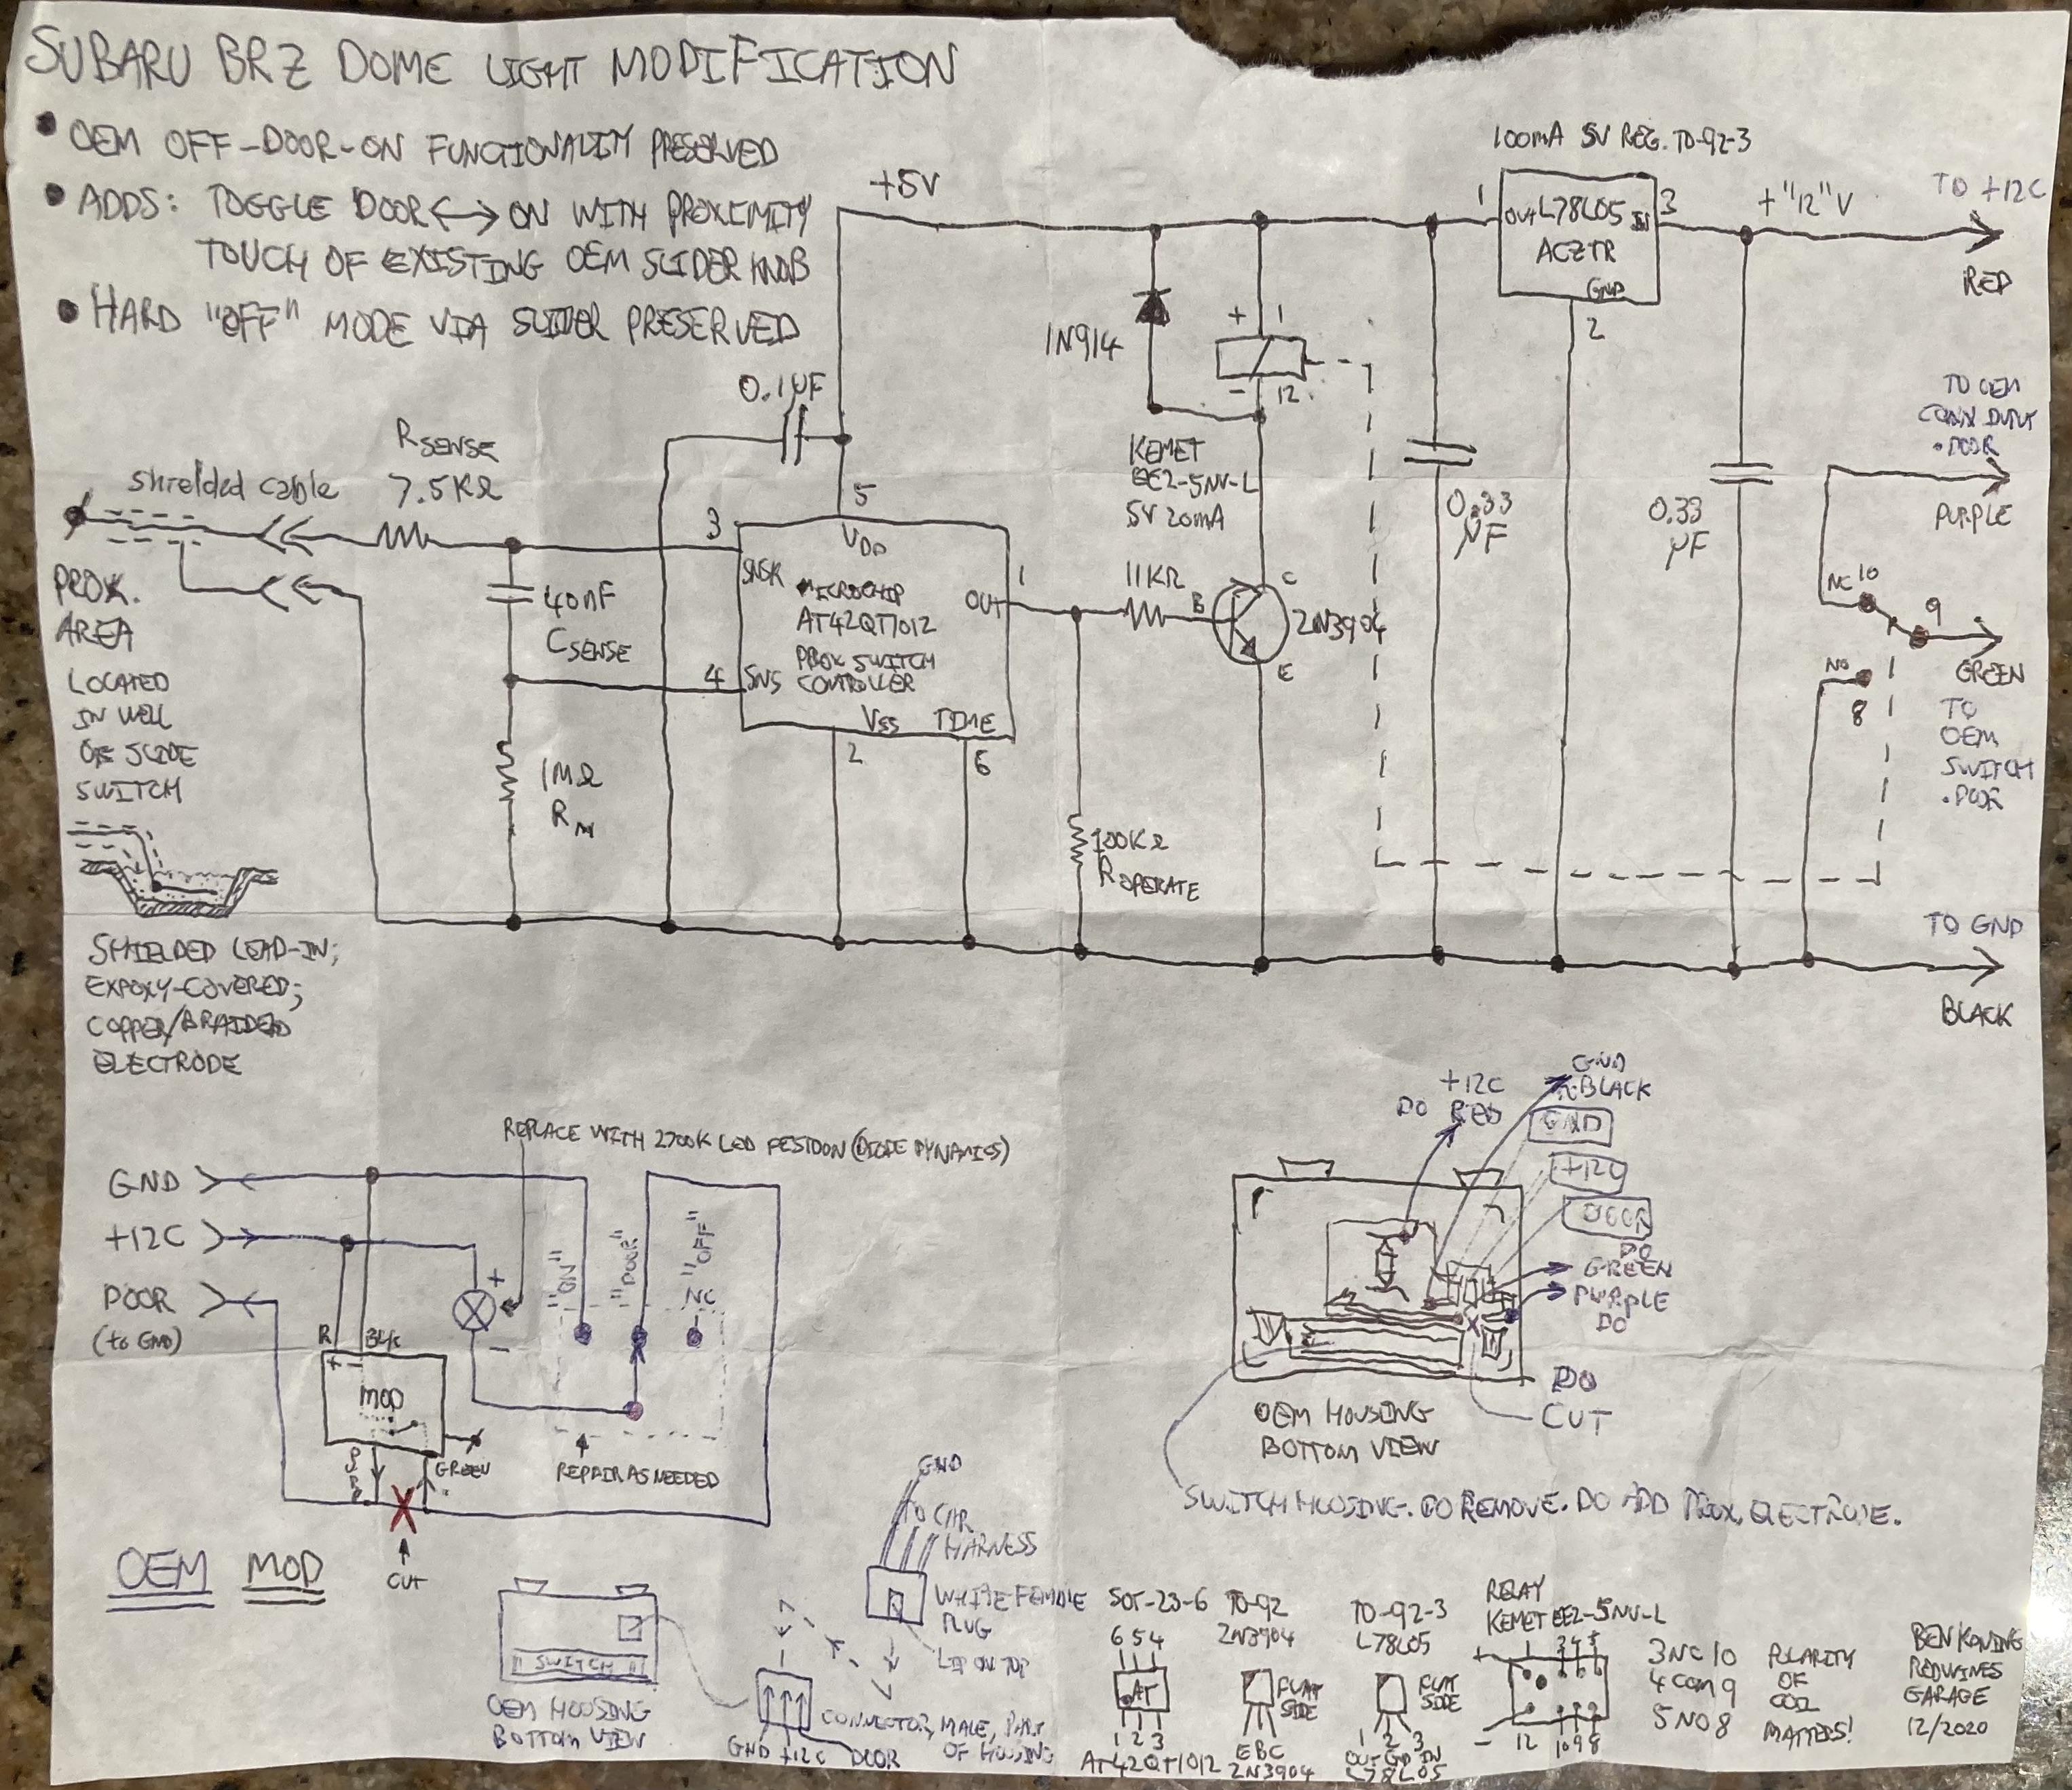 SUBARU BRZ DOME LIGHT MODIFICATION
• OEM OFF-DOOR-ON FUNCTIONALITY PRESERVED
• ADDS: TOGGLE DOOR ↔ ON WITH PROXIMITY
TOUCH OF EXISTING OEM SLIDER KNOB
• HARD "OFF" MODE VIA SLIDER PRESERVED
+5V
100mA 5V REG. TO-92-3
1
OUT L78L05 IN
ACZTR
GND
3
2
+"12"V
TO +12C
RED
1N914
+ 1
- 12
KEMET
EE2-5NU-L
5V 20mA
0.1µF
RSENSE
7.5KΩ
shielded cable
PROX.
AREA
LOCATED
IN WELL
OF SLIDE
SWITCH
40nF
CSENSE
1MΩ
5
VDD
3
SNSK
MICROCHIP
AT42QT1012
PROX SWITCH
CONTROLLER
4
SNS
VSS
TIME
2
6
OUT
1
11KΩ
B
C
E
2N3904
100KΩ
ROPERATE
0.33
µF
0.33
µF
TO OEM
CONN
DOOR
PURPLE
NC 10
9
GREEN
NO
8
TO
OEM
SWITCH
DOOR
TO GND
BLACK
SHIELDED LEAD-IN;
EXPOXY-COVERED;
COPPER/BRAIDED
ELECTRODE
REPLACE WITH 2700K LED FESTOON (DIODE DYNAMICS)
GND
+12C
DOOR
(to GND)
R
BLK
+ -
MOD
GREEN
CUT
+
-
"ON"
"DOOR"
"OFF"
NC
REPAIR AS NEEDED
OEM MOD
+12C
DO RED
GND
BLACK
GND
+12C
DOOR
DO
GREEN
PURPLE
DO
DO
CUT
OEM HOUSING
BOTTOM VIEW
SWITCH HOUSING. DO REMOVE. DO ADD PROX. ELECTRODE.
SWITCH
OEM HOUSING
BOTTOM VIEW
GND
TO CAR
HARNESS
WHITE FEMALE
PLUG
LIP ON TOP
CONNECTOR, MALE, PART
OF HOUSING
GND +12C DOOR
SOT-23-6
6 5 4
AT
1 2 3
AT42QT1012
TO-92
2N3904
FLAT
SIDE
EBC
2N3904
TO-92-3
L78L05
FLAT
SIDE
1 2 3
OUT GND IN
L78L05
RELAY
KEMET EE2-5NU-L
+ 1 3 4 5
- 12 10 9 8
3 NC 10
4 COM 9
5 NO 8
POLARITY
OF
COIL
MATTERS!
BEN KONING
REDWINES
GARAGE
12/2020